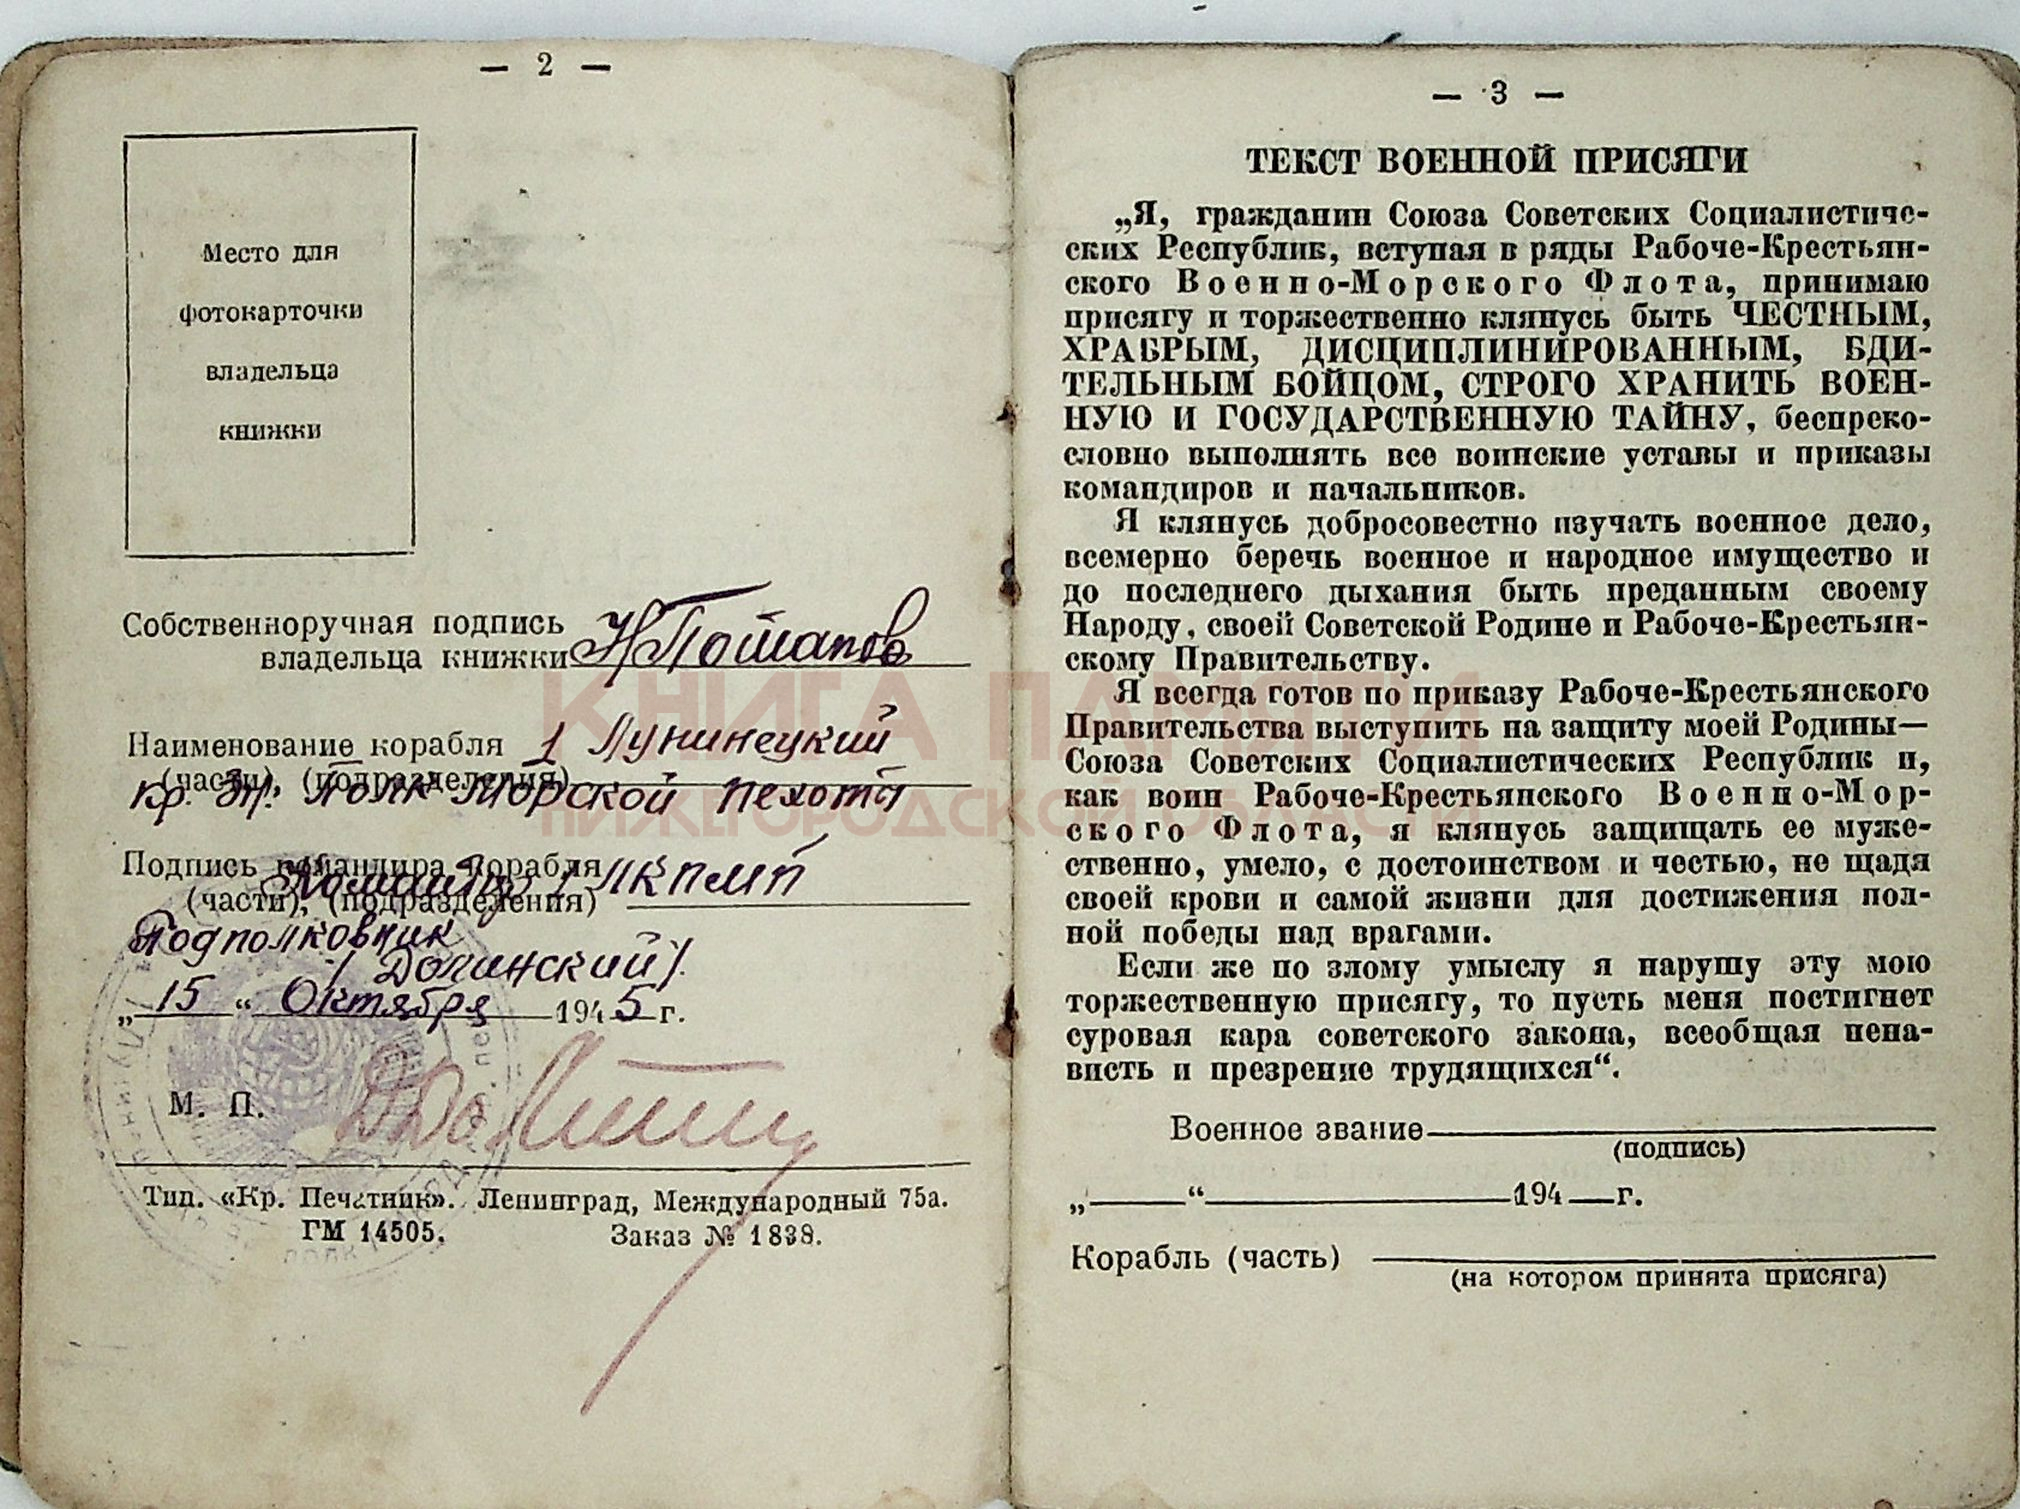 — 2 —
Место для
фотокарточки
владельца
книжки
Собственноручная подпись
владельца книжки Н Потапов
Наименование корабля 1 Лунинецкий
(части), (подразделения)
кр. Зн. Полк Морской Пехоты
Подпись командира корабля
Командир 1 ЛКПМП
(части), (подразделения)
Подполковник
/Долинский/.
„ 15 “ Октября 1945 г.
М. П.
Тип. «Кр. Печатник». Ленинград, Международный 75а.
ГМ 14505. Заказ № 1838.
— 3 —
ТЕКСТ ВОЕННОЙ ПРИСЯГИ
„Я, гражданин Союза Советских Социалистиче-
ских Республик, вступая в ряды Рабоче-Крестьян-
ского Военно-Морского Флота, принимаю
присягу и торжественно клянусь быть ЧЕСТНЫМ,
ХРАБРЫМ, ДИСЦИПЛИНИРОВАННЫМ, БДИ-
ТЕЛЬНЫМ БОЙЦОМ, СТРОГО ХРАНИТЬ ВОЕН-
НУЮ И ГОСУДАРСТВЕННУЮ ТАЙНУ, беспреко-
словно выполнять все воинские уставы и приказы
командиров и начальников.
Я клянусь добросовестно изучать военное дело,
всемерно беречь военное и народное имущество и
до последнего дыхания быть преданным своему
Народу, своей Советской Родине и Рабоче-Крестьян-
скому Правительству.
Я всегда готов по приказу Рабоче-Крестьянского
Правительства выступить на защиту моей Родины—
Союза Советских Социалистических Республик и,
как воин Рабоче-Крестьянского Военно-Мор-
ского Флота, я клянусь защищать ее муже-
ственно, умело, с достоинством и честью, не щадя
своей крови и самой жизни для достижения пол-
ной победы над врагами.
Если же по злому умыслу я нарушу эту мою
торжественную присягу, то пусть меня постигнет
суровая кара советского закона, всеобщая нена-
висть и презрение трудящихся“.
Военное звание
(подпись)
„ “ 194 г.
Корабль (часть)
(на котором принята присяга)
КНИГА ПАМЯТИ
НИЖЕГОРОДСКОЙ ОБЛАСТИ